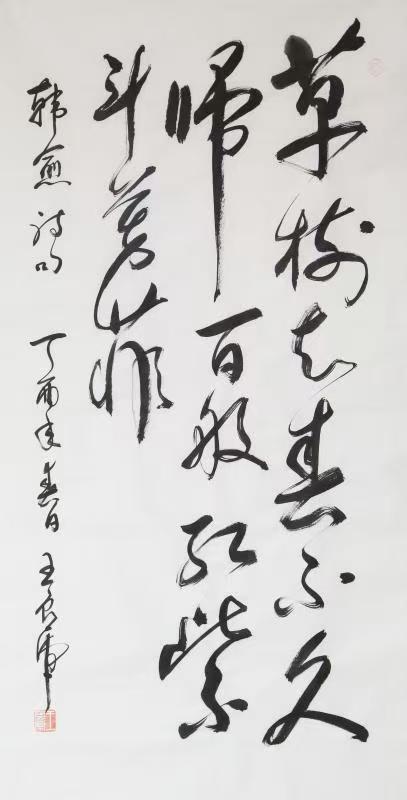 草樹知春不久
歸百般紅紫
斗芳菲
韓愈詩句 丁酉年春日 王良虎